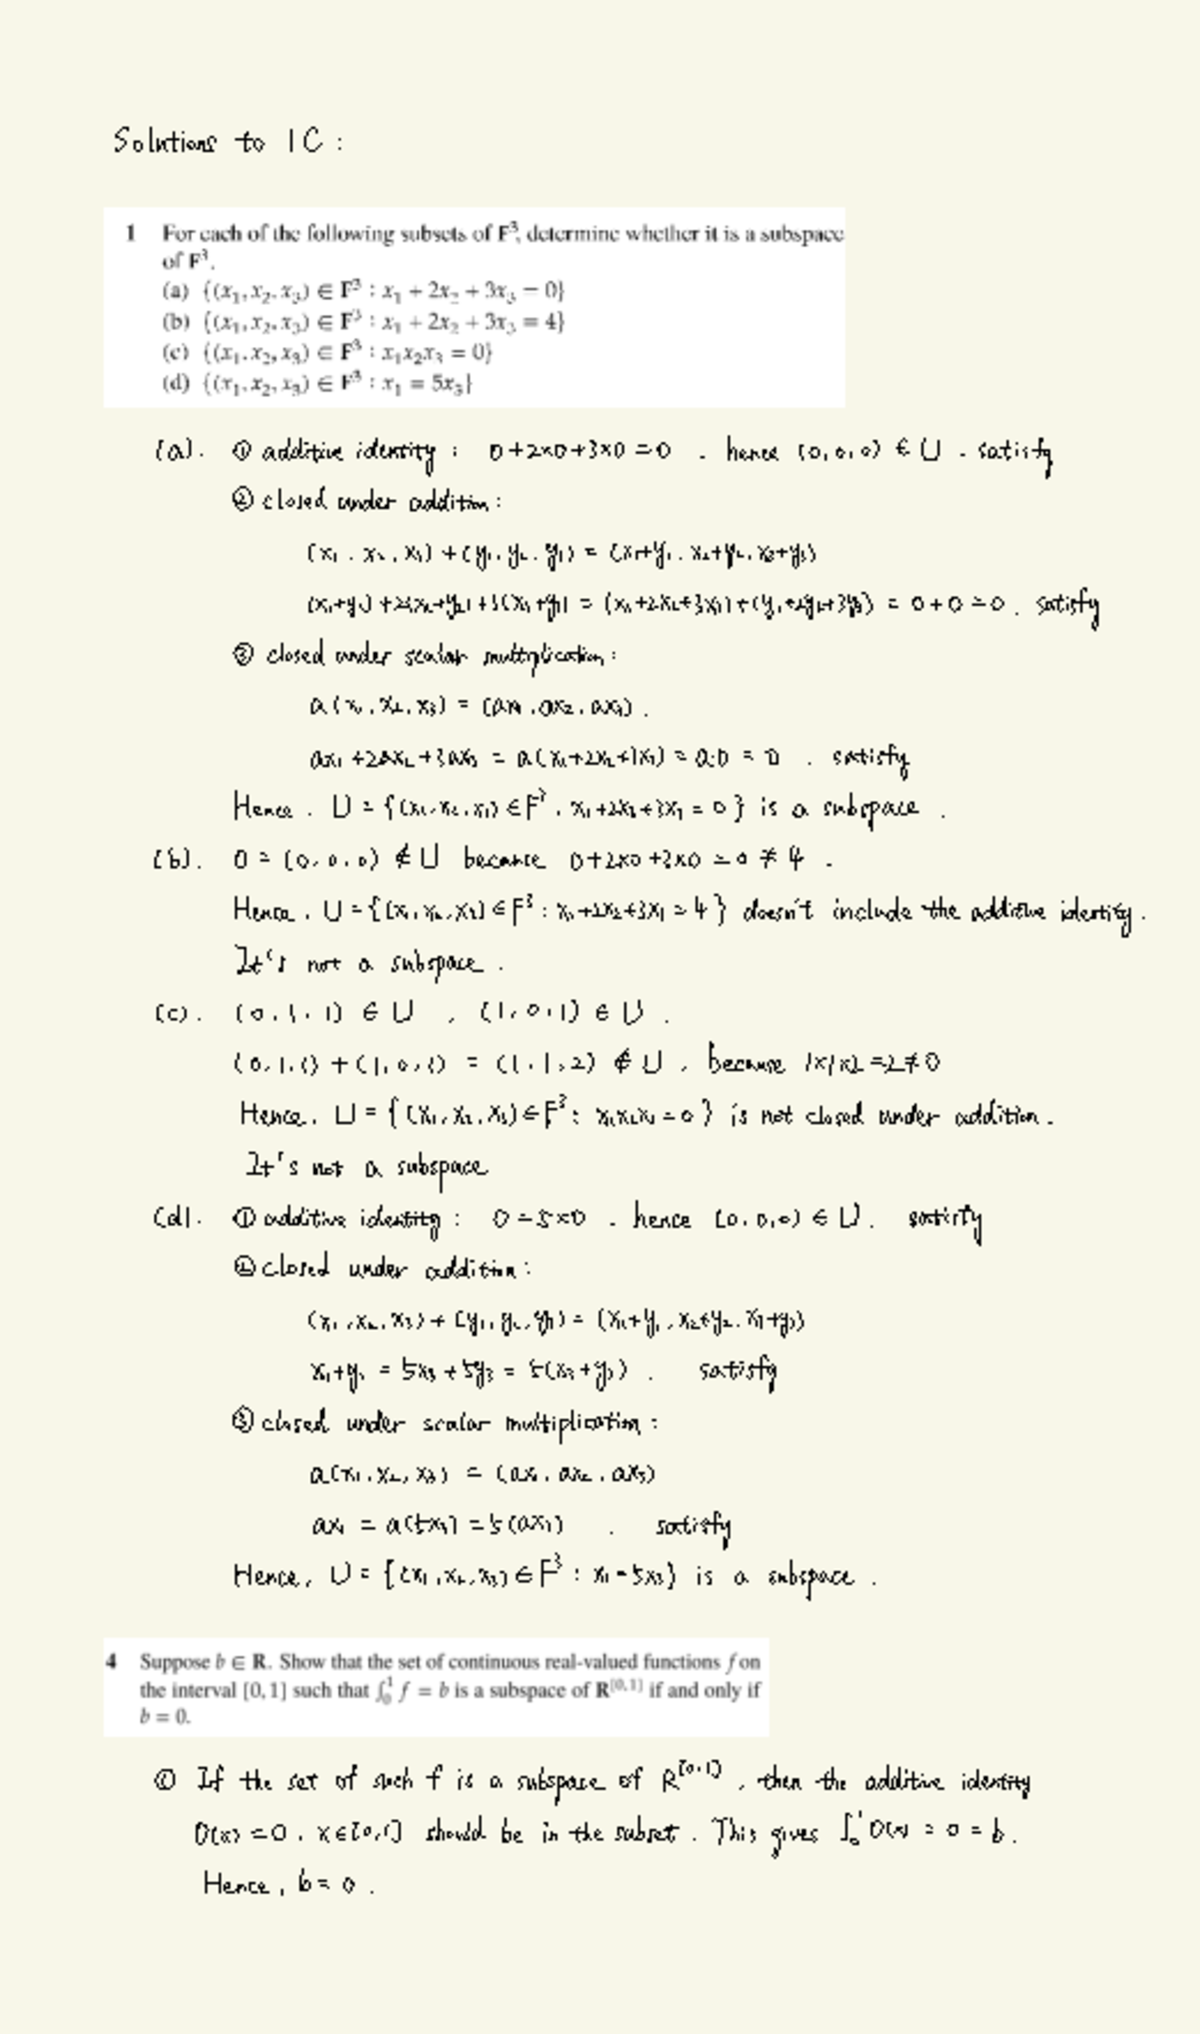 Solutions to 1C :
1 For each of the following subsets of F³, determine whether it is a subspace
of F³.
(a) {(x₁, x₂, x₃) ∈ F³ : x₁ + 2x₂ + 3x₃ = 0}
(b) {(x₁, x₂, x₃) ∈ F³ : x₁ + 2x₂ + 3x₃ = 4}
(c) {(x₁, x₂, x₃) ∈ F³ : x₁x₂x₃ = 0}
(d) {(x₁, x₂, x₃) ∈ F³ : x₁ = 5x₃}
(a). ① additive identity : 0+2×0+3×0 = 0 . hence (0,0,0) ∈ U . satisfy
② closed under addition :
(x₁, x₂, x₃) + (y₁, y₂, y₃) = (x₁+y₁, x₂+y₂, x₃+y₃)
(x₁+y₁)+2(x₂+y₂)+3(x₃+y₃) = (x₁+2x₂+3x₃)+(y₁+2y₂+3y₃) = 0+0 = 0 . satisfy
③ closed under scalar multiplication :
a(x₁, x₂, x₃) = (ax₁, ax₂, ax₃) .
ax₁+2ax₂+3ax₃ = a(x₁+2x₂+3x₃) = a·0 = 0 . satisfy
Hence , U = {(x₁, x₂, x₃) ∈ F³ , x₁+2x₂+3x₃ = 0} is a subspace .
(b). 0 = (0,0,0) ∉ U because 0+2×0+3×0 = 0 ≠ 4 .
Hence , U = {(x₁, x₂, x₃) ∈ F³ : x₁+2x₂+3x₃ = 4} doesn't include the additive identity .
It's not a subspace .
(c). (0,1,1) ∈ U , (1,0,1) ∈ U .
(0,1,1) + (1,0,1) = (1,1,2) ∉ U , because 1×1×2 = 2 ≠ 0
Hence , U = {(x₁, x₂, x₃) ∈ F³ : x₁x₂x₃ = 0} is not closed under addition .
It's not a subspace
(d). ① additive identity : 0 = 5×0 . hence (0,0,0) ∈ U . satisfy
② closed under addition :
(x₁, x₂, x₃) + (y₁, y₂, y₃) = (x₁+y₁, x₂+y₂, x₃+y₃)
x₁+y₁ = 5x₃+5y₃ = 5(x₃+y₃) . satisfy
③ closed under scalar multiplication :
a(x₁, x₂, x₃) = (ax₁, ax₂, ax₃)
ax₁ = a(5x₃) = 5(ax₃) . satisfy
Hence , U = {(x₁, x₂, x₃) ∈ F³ : x₁ = 5x₃} is a subspace .
4 Suppose b ∈ R. Show that the set of continuous real-valued functions f on
the interval [0, 1] such that ∫₀¹ f = b is a subspace of R^[0,1] if and only if
b = 0.
① If the set of such f is a subspace of R^[0,1] , then the additive identity
0(x) = 0 , x∈[0,1] should be in the subset . This gives ∫₀¹ 0(x) = 0 = b .
Hence , b = 0 .